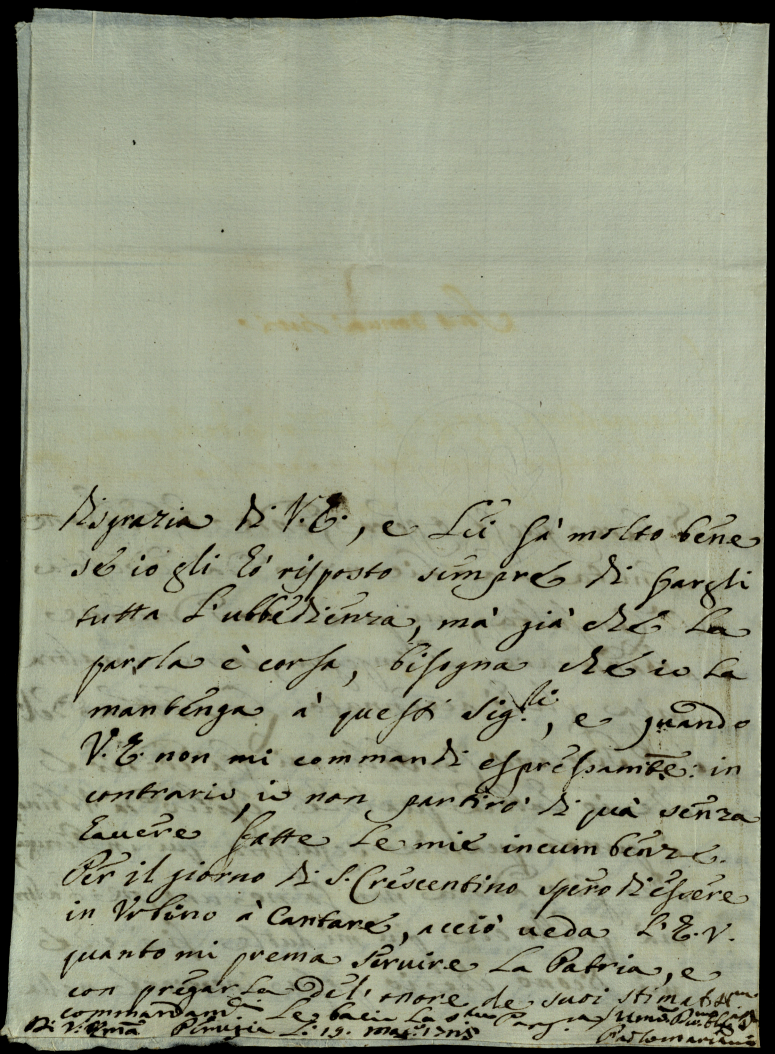 disgrazia di V.E., e Lei sà molto bene
se io gli hò risposto sempre di fargli
tutta l'ubbedienza, mà già che la
parola è corsa, bisogna che io la
mantenga à questi Sig.li, e quando
V.E. non mi commandi espressamte: in
contrario, io non partirò di quà senza
havere fatte le mie incumbenze.
Per il giorno di S. Crescentino spero di essere
in Urbino à Cantare, acciò veda l'E.V.
quanto mi prema servire la Patria, e
con pregarla dell'onore de suoi stimatmi
commandamti Le bacio la
Di V. Perugia Li 19. mag.